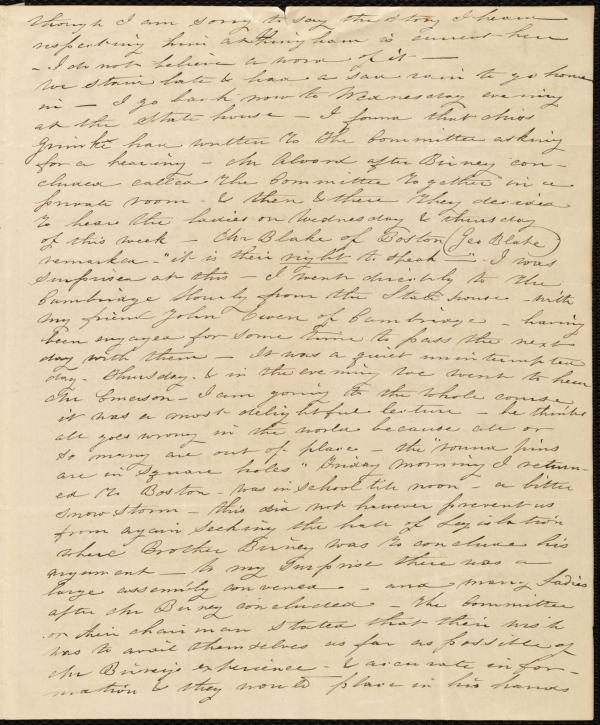 though I am sorry to say the story I hear
respecting him at Hingham is current here
- I do not believe a word of it -
We staid late & had a sad rain to go home
in - I go back now to Wednesday evening
at the State house - I found that Miss
Grimké had written to the Committee asking
for a hearing - Mr Alvord after Birney con-
cluded called the Committee together in a
private room - & then & there they decided
to hear the ladies on Wednesday & Thursday
of this week - Mr Blake of Boston (Geo Blake)
remarked - "it is their right to speak -" I was
surprised at this - I went directly to
Cambridge from the State house - with
my friend John Owen of Cambridge - having
been engaged for some time to pass the next
day with them - It was a quiet uninterrupted
day - Thursday - & in the evening we went to hear
Mr Emerson - I am going to the whole course
it was a most delightful lecture - he thinks
all goes wrong in the world because all or
so many are out of place - the "round pins
are in square holes" Friday morning I return-
ed to Boston - was in school till noon - a bitter
snow storm - this did not however prevent us
from again seeking the hall of Legislation
where Brother Birney was to conclude his
argument - to my surprise there was a
large assembly convened - and many Ladies
after Mr Birney concluded - the Committee
or their chairman stated that their wish
was to avail themselves as far as possible of
Mr Birney's experience - & accurate infor-
mation & they would place in his hands